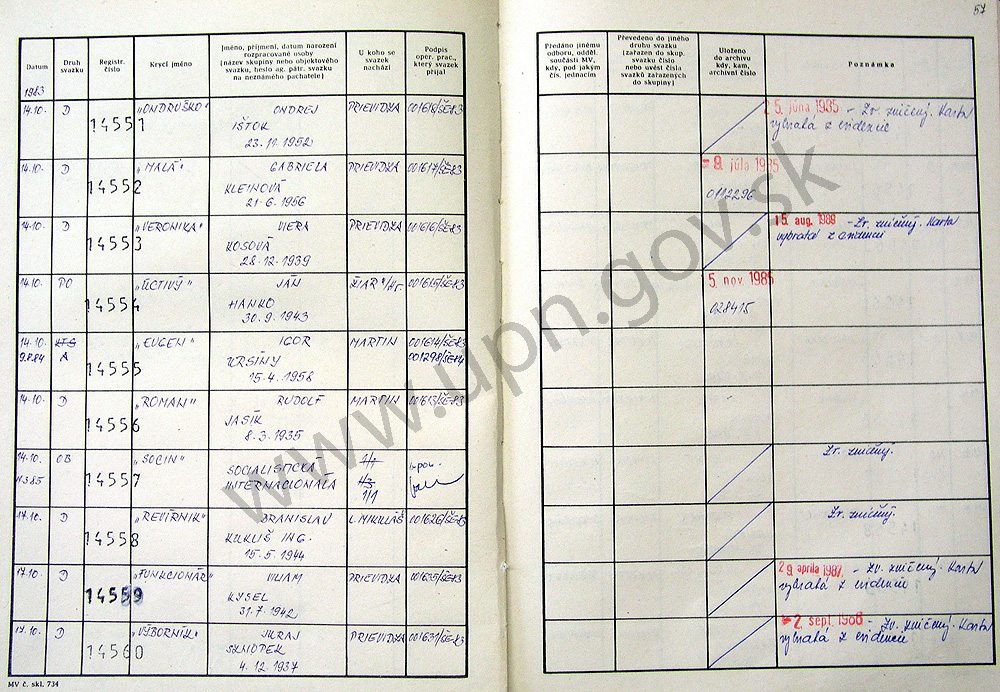 57
Datum
Druh
svazku
Registr.
číslo
Krycí jméno
Jméno, příjmení, datum narození
rozpracované osoby
(název skupiny nebo objektového
svazku, heslo ag. pátr. svazku
na neznámého pachatele)
U koho se
svazek
nachází
Podpis
oper. prac.,
který svazek
přijal
Předáno jinému
odboru, odděl.
součásti MV,
kdy, pod jakým
čís. jednacím
Převedeno do jiného
druhu svazku
(zařazen do skup.
svazku číslo
nebo uvést čísla
svazků zařazených
do skupiny)
Uloženo
do archivu
kdy, kam,
archivní číslo
Poznámka
1983
14.10. D 14551 „ONDRUŠKO" ONDREJ PRIEVIDZA 001618/ŠE-83
IŠTOK
23.11.1952
25. júna 1985 - Zv. zničený. Karta
vybratá z evidencie
14.10. D 14552 „MALÁ" GABRIELA PRIEVIDZA 001617/ŠE-83
KLEINOVÁ
21.6.1956
- 9. júla 1985
0112296
14.10. D 14553 „VERONIKA" VIERA PRIEVIDZA 001616/ŠE-83
KOSOVÁ
28.12.1939
15. aug. 1988 - Zv. zničený. Karta
vybratá z evidencie
14.10. PO 14554 „ÚCTIVÝ" JÁN ŽIAR n/Hr. 001615/ŠE-83
HANKO
30.9.1943
5. nov. 1985
028415
14.10. KTS 14555 „EUGEN" IGOR MARTIN 001614/ŠE-83
9.8.84 A URSÍNY 001298/ŠE-84
15.4.1958
14.10. D 14556 „ROMAN" RUDOLF MARTIN 001613/ŠE-83
JASÍK
8.3.1935
14.10. OB 14557 „SOCIN" SOCIALISTICKÁ 1/1
11.3.85 INTERNACIONÁLA
1/1
Zv. zničený.
17.10. D 14558 „REVÍRNIK" BRANISLAV L. MIKULÁŠ 001626/ŠE-83
KUKLIŠ ING.
15.5.1944
Zv. zničený.
17.10. D 14559 „FUNKCIONÁR" VILIAM PRIEVIDZA 001635/ŠE-83
KYSEL
31.7.1942
29. apríla 1987 - Zv. zničený. Karta
vybratá z evidencie
17.10. D 14560 „VÝBORNÍK" JURAJ PRIEVIDZA 001631/ŠE-83
SZNOPEK
4.12.1937
- 2. sept. 1988 - Zv. zničený. Karta
vybratá z evidencie
MV č. skl. 734
www.upn.gov.sk